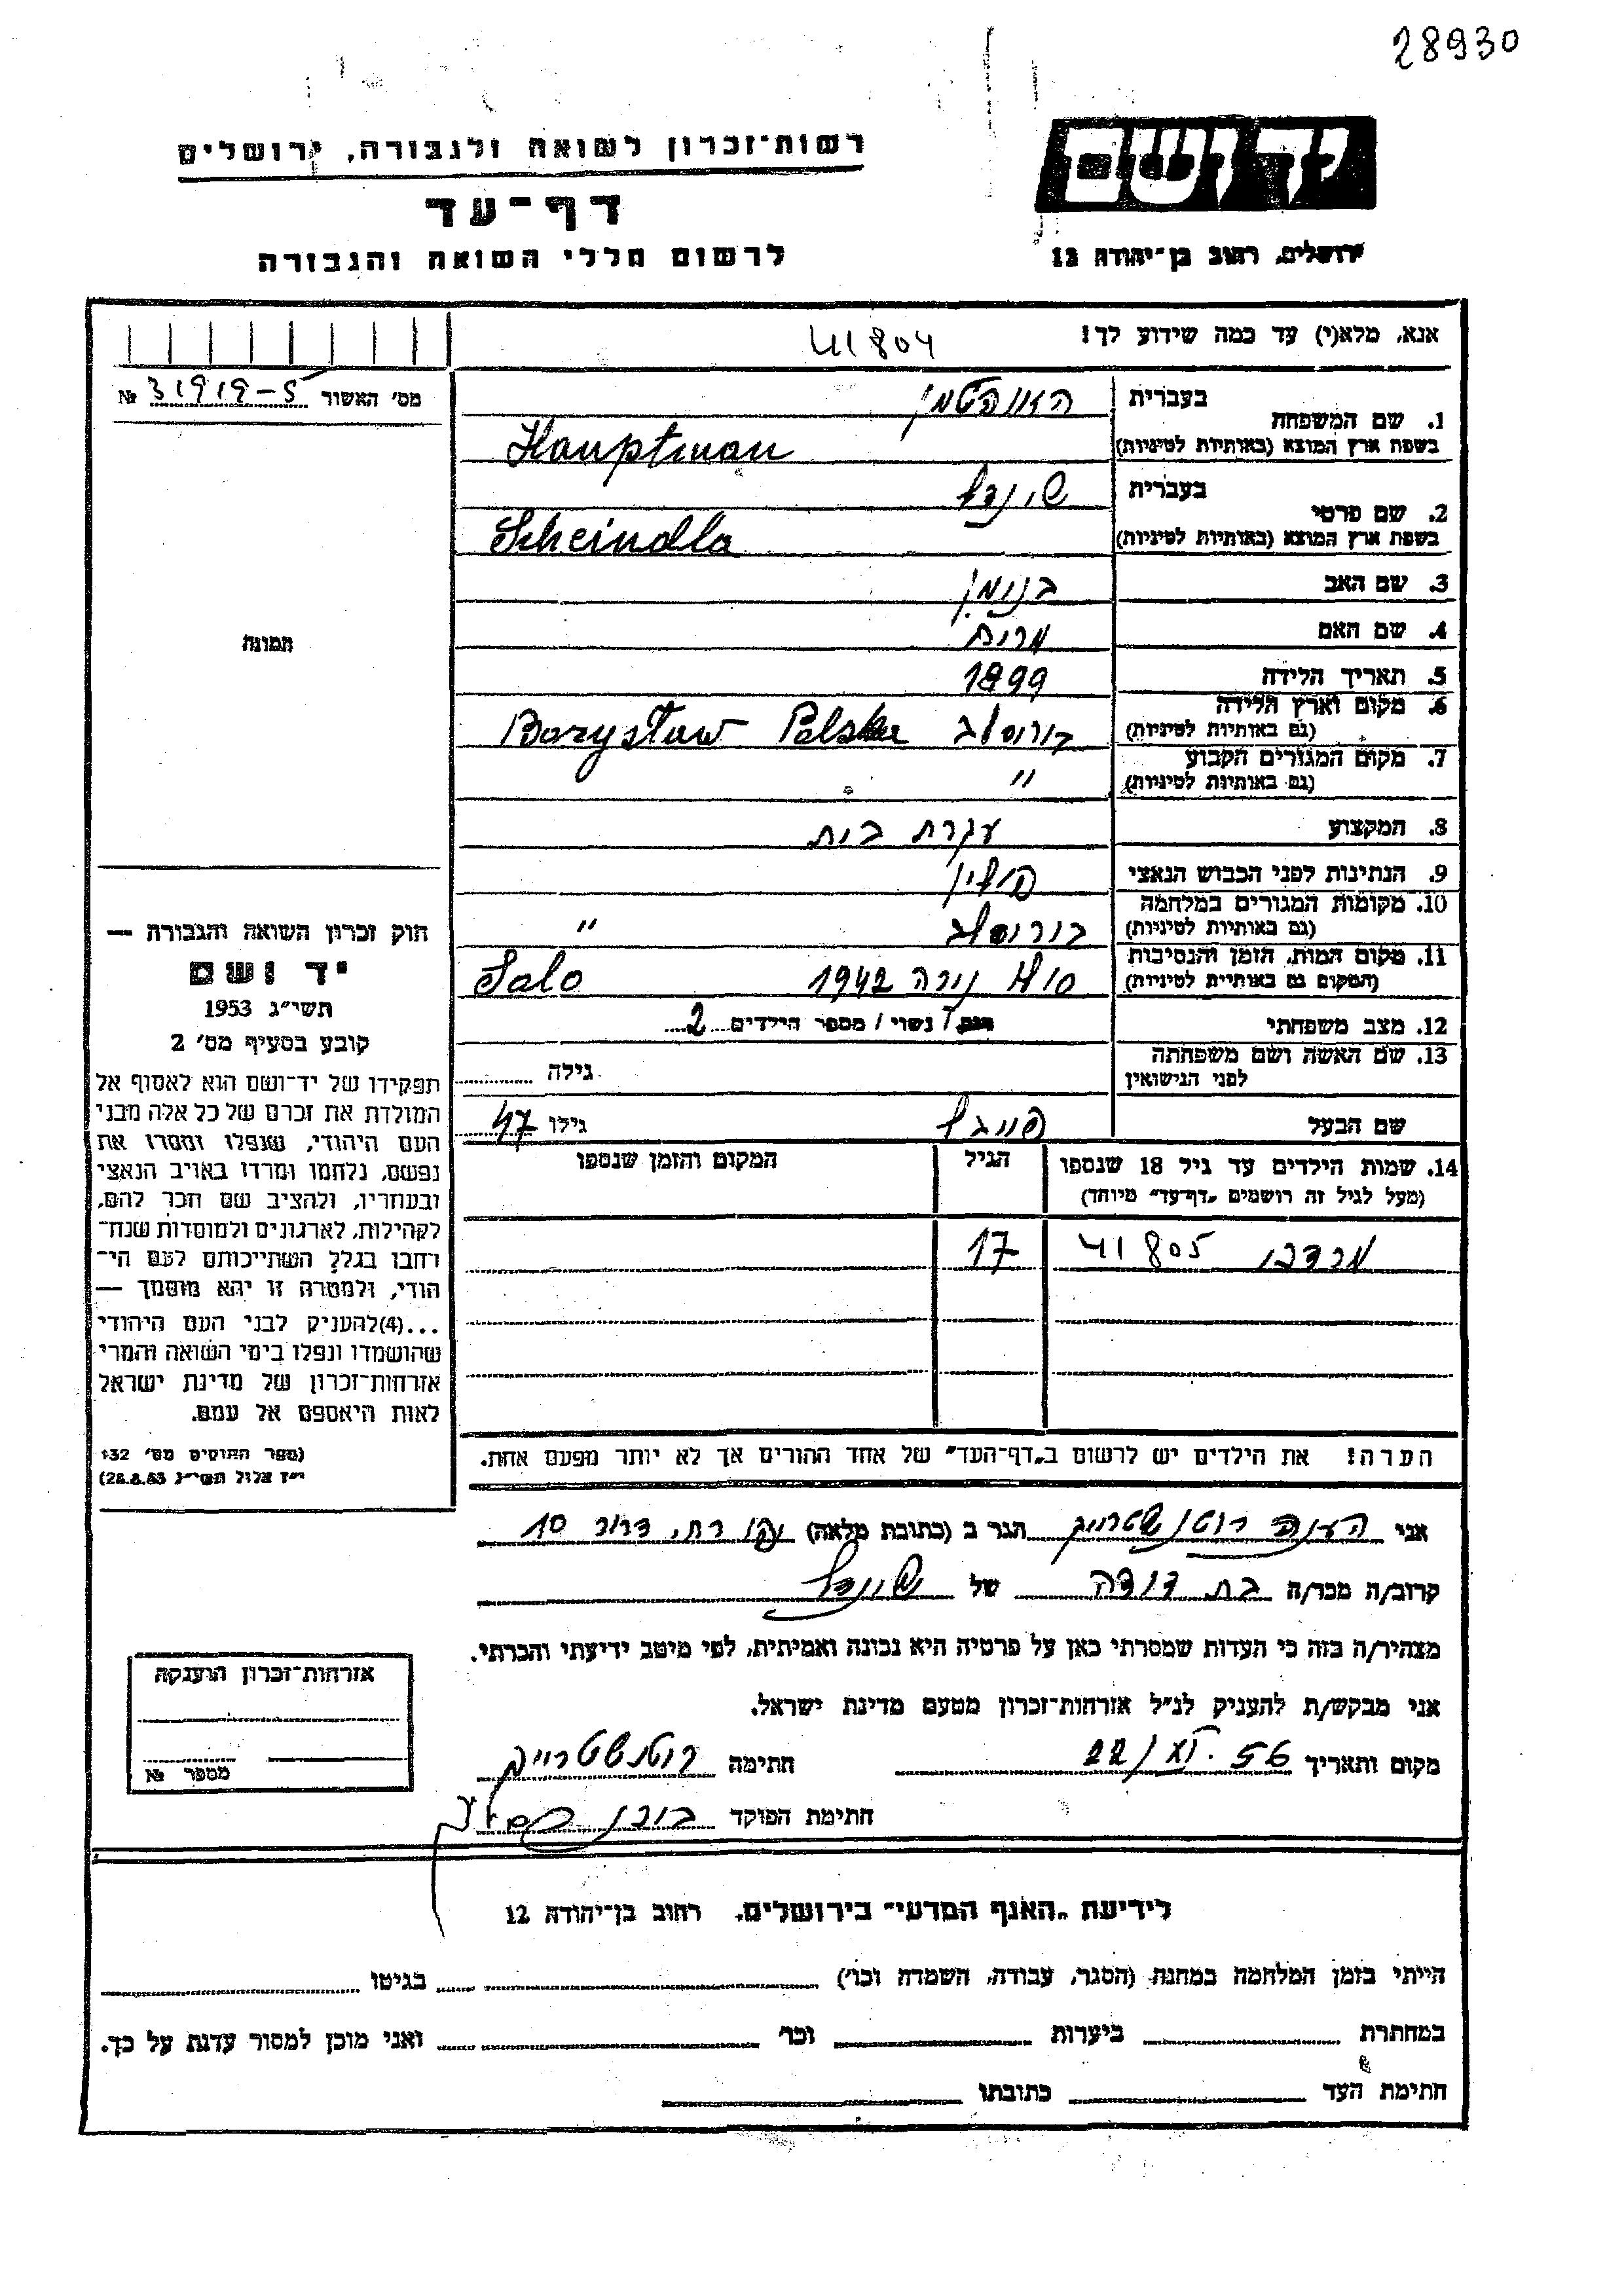 28930
יד ושם
ירושלים, רחוב בן־יהודה 12
רשות־זכרון לשואה ולגבורה, ירושלים
דף־עד
לרשום חללי השואה והגבורה
אנא, מלא(י) עד כמה שידוע לך!
41804
מס' האשור № 31919-5
1. שם המשפחה
בעברית
האופטמן
בשפת ארץ המוצא (באותיות לטיניות)
Hauptman
2. שם פרטי
בעברית
שינדל
בשפת ארץ המוצא (באותיות לטיניות)
Scheindla
3. שם האב
בנימין
4. שם האם
מרים
5. תאריך הלידה
1899
6. מקום וארץ הלידה
(גם באותיות לטיניות)
בוריסלב Borysław Polska
7. מקום המגורים הקבוע
(גם באותיות לטיניות)
"
8. המקצוע
עקרת בית
9. הנתינות לפני הכבוש הנאצי
פולין
10. מקומות המגורים במלחמה
(גם באותיות לטיניות)
בוריסלב "
11. מקום המות, הזמן והנסיבות
(המקום גם באותיות לטיניות)
1942 Salo
12. מצב משפחתי
נשוי / מספר הילדים 2
13. שם האשה ושם משפחתה
לפני הנישואין
גילה
שם הבעל
פייבל
גילו 47
14. שמות הילדים עד גיל 18 שנספו
(מעל לגיל זה רושמים "דף־עד" מיוחד)
הגיל
המקום והזמן שנספו
מרדכי 41805 17
הערה! את הילדים יש לרשום ב"דף־העד" של אחד ההורים אך לא יותר מפעם אחת.
תמונה
חוק זכרון השואה והגבורה —
יד ושם
תשי"ג 1953
קובע בסעיף מס' 2
תפקידו של יד־ושם הוא לאסוף אל
המולדת את זכרם של כל אלה מבני
העם היהודי, שנפלו ומסרו את
נפשם, נלחמו ומרדו באויב הנאצי
ובעוזריו, ולהציב שם וזכר להם,
לקהילות, לארגונים ולמוסדות שנח־
רבו בגלל השתייכותם לעם הי־
הודי, ולמטרה זו יהא מוסמך —
...(4)להעניק לבני העם היהודי
שהושמדו ונפלו בימי השואה והמרי
אזרחות־זכרון של מדינת ישראל
לאות היאספם אל עמם.
(ספר החוקים מס' 132
י"ז אלול תשי"ג 28.8.53)
אני הענה רוטנשטרייך הגר ב (כתובת מלאה) דרור 10
קרוב/ה מכר/ה בת דודה של שיינדל
מצהיר/ה בזה כי העדות שמסרתי כאן על פרטיה היא נכונה ואמיתית, לפי מיטב ידיעתי והכרתי.
אני מבקש/ת להעניק לנ"ל אזרחות־זכרון מטעם מדינת ישראל.
מקום ותאריך 22/XI.56 חתימה רוטנשטרייך
חתימת הפוקד
אזרחות־זכרון הוענקה
מספר №
לידיעת "האגף המדעי" בירושלים, רחוב בן־יהודה 12
הייתי בזמן המלחמה במחנה (הסגר, עבודה, השמדה וכו') בגיטו
במחתרת ביערות וכו' ואני מוכן למסור עדות על כך.
חתימת העד כתובתו